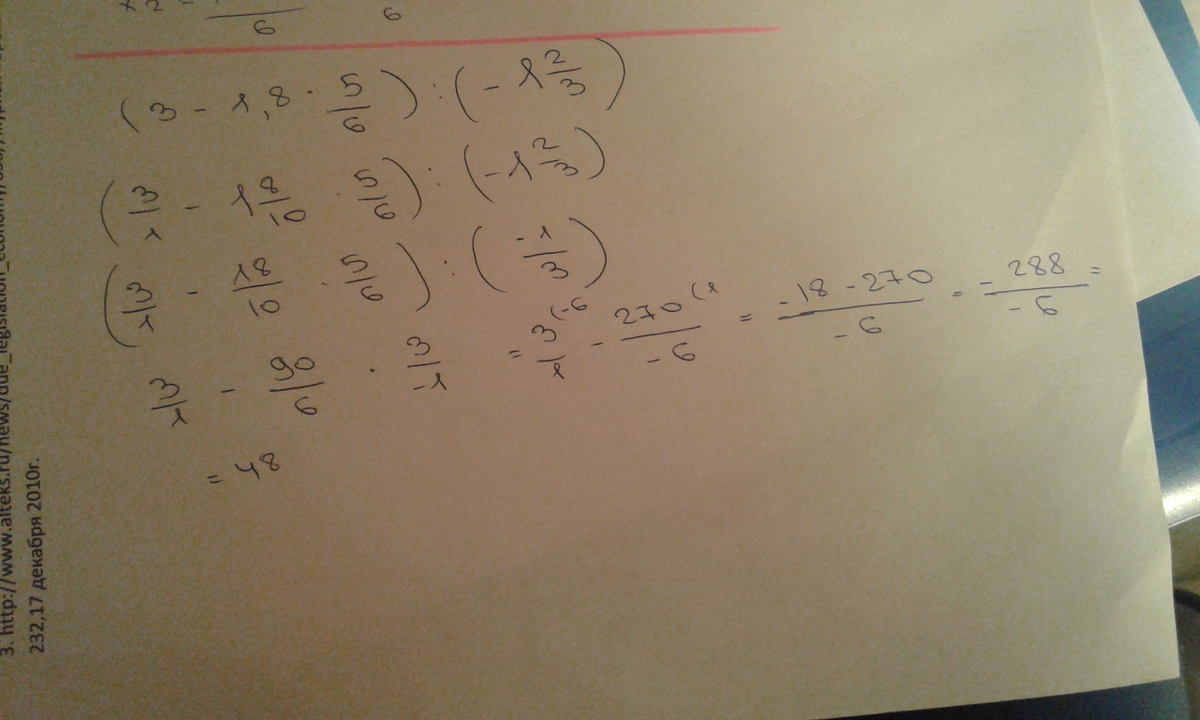 (3 - 1,8 · 5/6) : (-1 2/3)
(3/1 - 1 8/10 · 5/6) : (-1 2/3)
(3/1 - 18/10 · 5/6) : (-1/3)
3/1 - 90/6 · 3/-1 = 3/1 (-6 - 270/-6 (1 = -18 - 270/-6 = -288/-6 =
= 48
3. http://www.alteks.ru/news/due_legislation_economy/
232,17 декабря 2010г.